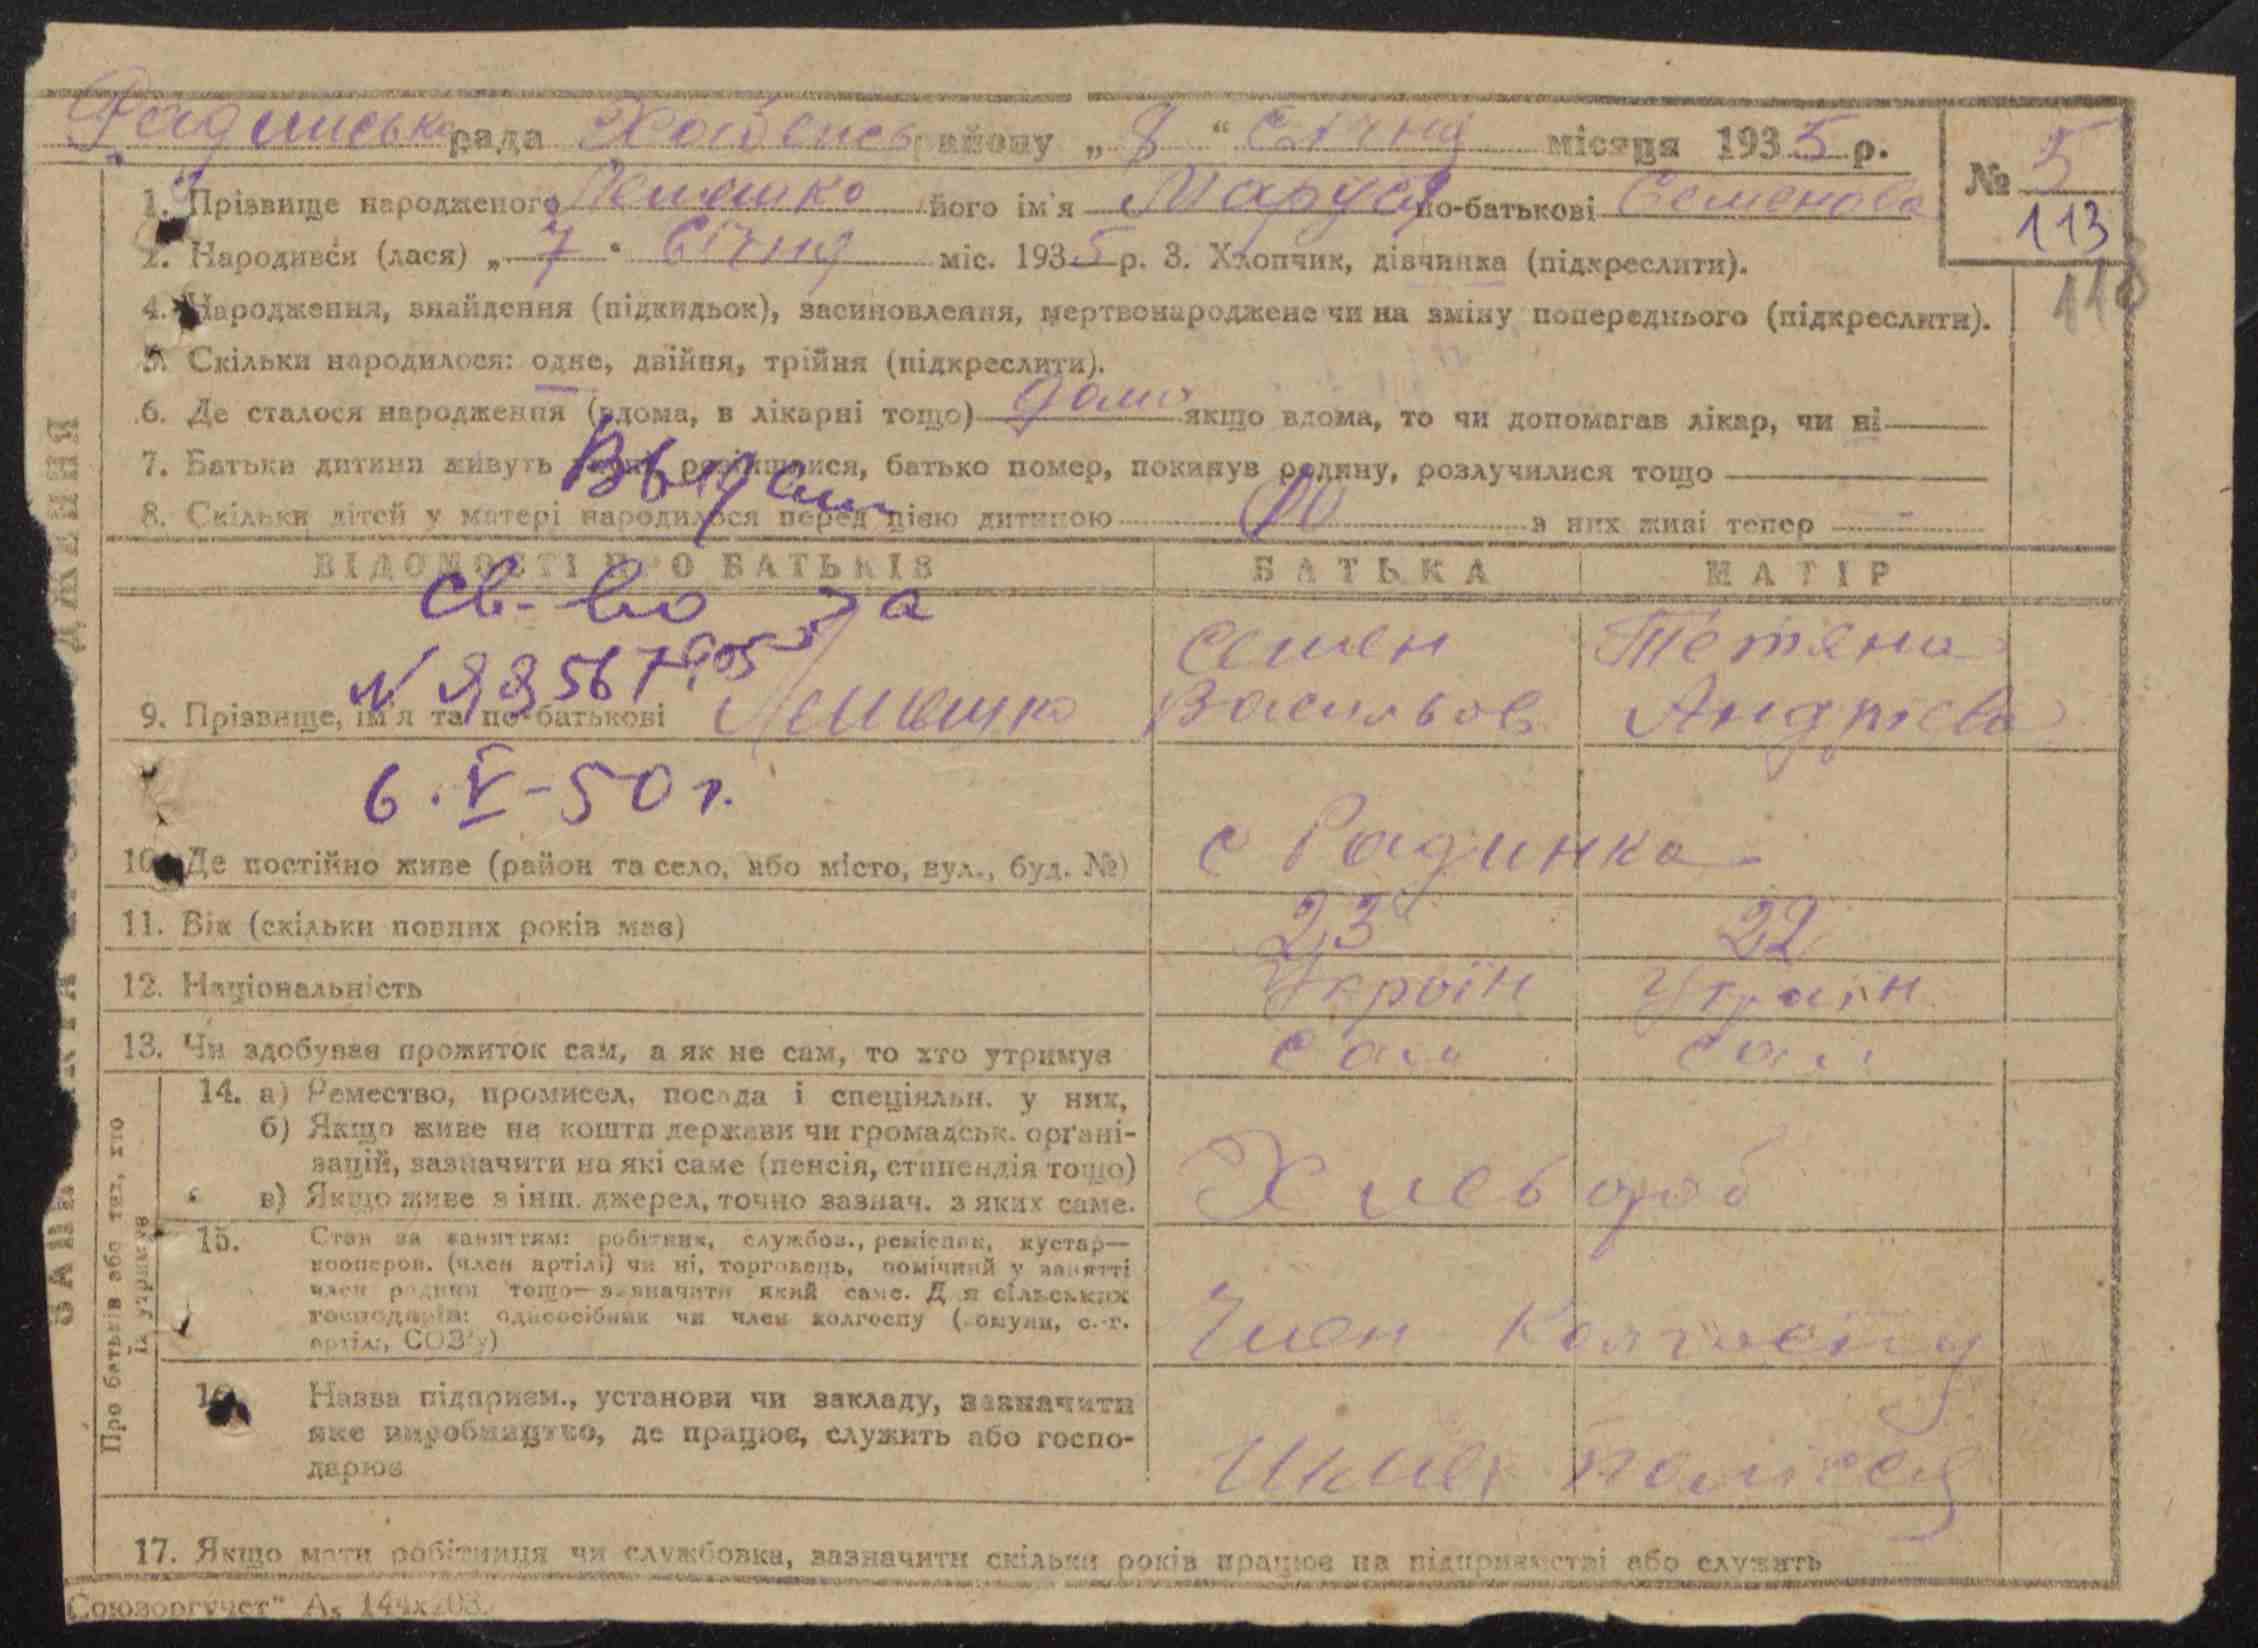 Радинська рада Хабенськ району „8“ Січня місяця 1935 р.
№ 5
113
118
1. Прізвище народженого Лемешко його ім'я Маруся по-батькові Семенова
2. Народився (лася) „7“ Січня міс. 1935 р. 3. Хлопчик, дівчинка (підкреслити).
4. Народження, знайдення (підкидьок), засиновлення, мертвонароджене чи на зміну попереднього (підкреслити).
5. Скільки народилося: одне, двійня, трійня (підкреслити).
6. Де сталося народження (вдома, в лікарні тощо) дома якщо вдома, то чи допомагав лікар, чи ні
7. Батьки дитини живуть розійшлися, батько помер, покинув родину, розлучилися тощо
8. Скільки дітей у матері народилося перед цією дитиною в них живі тепер -
ВІДОМОСТІ ПРО БАТЬКІВ БАТЬКА МАТІР
св-во за
6.V-50 г.
9. Прізвище, ім'я та по-батькові Лемешко Семен Васильов Тетяна Андрієва
10. Де постійно живе (район та село, або місто, вул., буд. №) с Радинка
11. Вік (скільки повних років має) 23 22
12. Національність Україн Україн
13. Чи здобуває прожиток сам, а як не сам, то хто утримує сам сам
Про батьків або тих, хто
їх утримує
14. а) Ремество, промисел, посада і спеціяльн. у них,
б) Якщо живе на кошти держави чи громадськ. органі-
зацій, зазначити на які саме (пенсія, стипендія тощо)
в) Якщо живе з інш. джерел, точно зазнач. з яких саме.
Хлебороб
15. Стан за заняттям: робітник, службов., ремісник, кустар—
кооперов. (член артілі) чи ні, торговець, помічний у занятті
член родини тощо—зазначити який саме. Для сільських
господарів: одноосібник чи член колгоспу (комуни, с.-г.
артілі, СОЗ'у)
Член Колгоспу
16. Назва підприєм., установи чи закладу, зазначити
яке виробництво, де працює, служить або госпо-
дарює
17. Якщо мати робітниця чи службовка, зазначити скільки років працює на підприємстві або служить
„Союзоргучет“ А₅ 144х203.